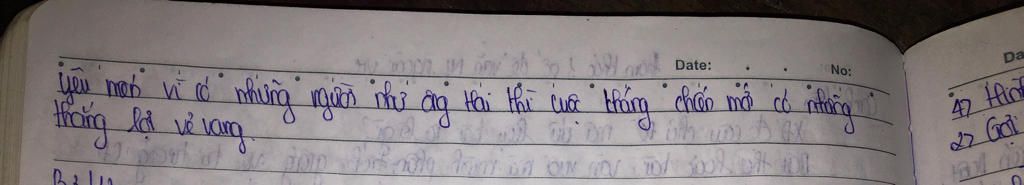 Date: No:
yêu mến vì có những người như ông Hai thì cuộc kháng chiến mới có những
thắng lợi vẻ vang.
Da
1) Hình
2) Gợi